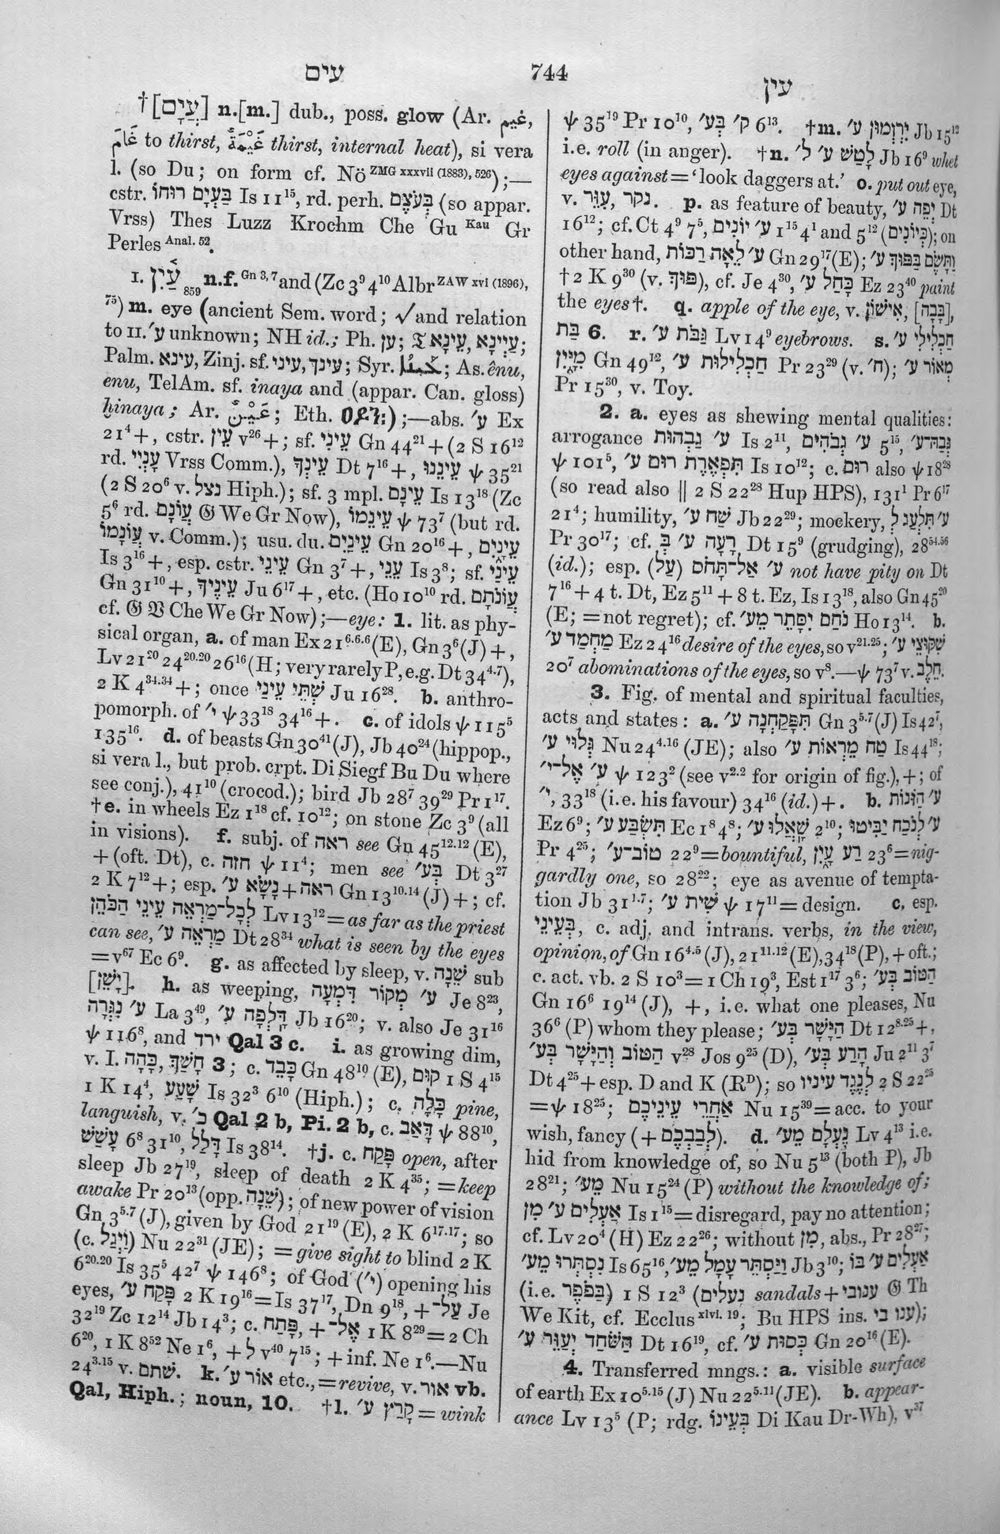 עים
744
עין
†[עֲיָם] n.[m.] dub., poss. glow (Ar. غيم,
to thirst, thirst, internal heat), si vera
l. (so Du; on form cf. Nö ZMG xxxvii (1883), 526);—
cstr. בַּעְיָם רוּחוֹ Is 11¹⁵, rd. perh. בְּעֹצֶם (so appar.
Vrss) Thes Luzz Krochm Che Gu Kau Gr
Perles Anal. 52.
I. עַ֫יִן 859 n.f. Gn 3, 7 and (Zc 3⁹ 4¹⁰ Albr ZAW xvi (1896),
75) m. eye (ancient Sem. word; √ and relation
to II. ע׳ unknown; NH id.; Ph. ען; 𝔗 עַיְינָא, עֵינָא;
Palm. עינא, Zinj. sf. עיני, עינך; Syr. ; As. ênu,
enu, TelAm. sf. inaya and (appar. Can. gloss)
ḫinaya; Ar. عَيْن; Eth. );—abs. ע׳ Ex
21⁴+, cstr. עֵין v²⁶+; sf. עֵינִי Gn 44²¹+(2 S 16¹²
rd. Vrss Comm.), עֵינְךָ Dt 7¹⁶+, עֵינֵנוּ ψ 35²¹
(2 S 20⁶ v. נצל Hiph.); sf. 3 mpl. עֵינָם Is 13¹⁸ (Zc
5⁶ rd. עֲוֺנָם 𝔊 We Gr Now), עֵינֵמוֹ ψ 73⁷ (but rd.
עֲוֺנֵמוֹ v. Comm.); usu. du. עֵינַיִם Gn 20¹⁶+, עֵינָיִם
Is 3¹⁶+, esp. cstr. עֵינֵי Gn 3⁷+, עֵנֵי Is 3⁸; sf. עֵינַי
Gn 31¹⁰+, עֵינֶיךָ Ju 6¹⁷+, etc. (Ho 10¹⁰ rd. עֲוֺנֹתָם
cf. 𝔊 𝔙 Che We Gr Now);—eye: 1. lit. as phy-
sical organ, a. of man Ex 21⁶·⁶·⁶ (E), Gn 3⁶ (J)+,
Lv 21²⁰ 24²⁰·²⁰ 26¹⁶ (H; very rarely P, e.g. Dt 34⁴·⁷),
2 K 4³⁴·³⁴+; once שְׁתֵּי עֵינַי Ju 16²⁸. b. anthro-
pomorph. of י׳ ψ 33¹⁸ 34¹⁶+. c. of idols ψ 115⁵
135¹⁶. d. of beasts Gn 30⁴¹ (J), Jb 40²⁴ (hippop.,
si vera l., but prob. crpt. Di Siegf Bu Du where
see conj.), 41¹⁰ (crocod.); bird Jb 28⁷ 39²⁹ Pr 1¹⁷.
†e. in wheels Ez 1¹⁸ cf. 10¹²; on stone Zc 3⁹ (all
in visions). f. subj. of ראה see Gn 45¹²·¹² (E),
+(oft. Dt), c. חזה ψ 11⁴; men see בְּע׳ Dt 3²⁷
2 K 7¹²+; esp. נָשָׂא ע׳+ראה Gn 13¹⁰·¹⁴ (J)+; cf.
לְכָל־מַרְאֵה עֵינֵי הַכֹּהֵן Lv 13¹²=as far as the priest
can see, מַרְאֵה ע׳ Dt 28³⁴ what is seen by the eyes
=v⁶⁷ Ec 6⁹. g. as affected by sleep, v. שֵׁנָה sub
[יָשֵׁן]. h. as weeping, מְקוֹר דִּמְעָה ע׳ Je 8²³,
נִגְּרָה ע׳ La 3⁴⁹, דָּלְפָה ע׳ Jb 16²⁰; v. also Je 31¹⁶
ψ 116⁸, and ירד Qal 3 c. i. as growing dim,
v. I. כָּהָה, חָשַׁךְ 3; c. כָּבֵד Gn 48¹⁰ (E), קוּם 1 S 4¹⁵
1 K 14⁴, שָׁעַע Is 32³ 6¹⁰ (Hiph.); c. כָּלָה pine,
languish, v. כ׳ Qal 2 b, Pi. 2 b, c. דָּאַב ψ 88¹⁰,
עָשֵׁשׁ 6⁸ 31¹⁰, דָּלַל Is 38¹⁴. †j. c. פָּקַח open, after
sleep Jb 27¹⁹, sleep of death 2 K 4³⁵; =keep
awake Pr 20¹³ (opp. שֵׁנָה); of new power of vision
Gn 3⁵·⁷ (J), given by God 21¹⁹ (E), 2 K 6¹⁷·¹⁷; so
(c. וַיְגַל) Nu 22³¹ (JE); =give sight to blind 2 K
6²⁰·²⁰ Is 35⁵ 42⁷ ψ 146⁸; of God (י׳) opening his
eyes, פָּקַח ע׳ 2 K 19¹⁶=Is 37¹⁷, Dn 9¹⁸, +עַל־ Je
32¹⁹ Zc 12¹⁴ Jb 14³; c. פָּתַח, +אֶל־ 1 K 8²⁹=2 Ch
6²⁰, 1 K 8⁵² Ne 1⁶, +לְ v⁴⁰ 7¹⁵; +inf. Ne 1⁶.—Nu
24³·¹⁵ v. שׁתם. k. אוֹר ע׳ etc.,=revive, v. אור vb.
Qal, Hiph.; noun, 10. †l. קָרַץ ע׳=wink
ψ 35¹⁹ Pr 10¹⁰, בְּע׳ ק׳ 6¹³. †m. יִרְזְמוּן ע׳ Jb 15¹²
i.e. roll (in anger). †n. לָטַשׁ ע׳ ל׳ Jb 16⁹ whet
eyes against=‘look daggers at.’ o. put out eye,
v. נקר, עִוֵּר. p. as feature of beauty, יְפֵה ע׳ Dt
16¹²; cf. Ct 4⁹ 7⁵, ע׳ יוֹנִים 1¹⁵ 4¹ and 5¹² (כְּיוֹנִים); on
other hand, לֵאָה רַכּוֹת ע׳ Gn 29¹⁷ (E); וַתָּשֶׂם בַּפּוּךְ ע׳
†2 K 9³⁰ (v. פּוּךְ), cf. Je 4³⁰, כָּחַל ע׳ Ez 23⁴⁰ paint
the eyes†. q. apple of the eye, v. אִישׁוֹן, [בָּבָה],
בַּת 6. r. גַּבֹּת ע׳ Lv 14⁹ eyebrows. s. חַכְלִילִי ע׳
מִיָּיִן Gn 49¹², חַכְלִילוּת ע׳ Pr 23²⁹ (v. ח׳); מְאוֹר ע׳
Pr 15³⁰, v. Toy.
2. a. eyes as shewing mental qualities:
arrogance גַּבְהוּת ע׳ Is 2¹¹, גְּבֹהִים ע׳ 5¹⁵, גְּבַהּ־ע׳
ψ 101⁵, תִּפְאֶרֶת רוּם ע׳ Is 10¹²; c. רוּם also ψ 18²⁸
(so read also ‖ 2 S 22²⁸ Hup HPS), 131¹ Pr 6¹⁷
21⁴; humility, שַׁח ע׳ Jb 22²⁹; mockery, תִּלְעַג לְ ע׳
Pr 30¹⁷; cf. רָעָה ע׳ בְּ Dt 15⁹ (grudging), 28⁵⁴·⁵⁶
(id.); esp. אַל־תָּחֹס (עַל) ע׳ not have pity on Dt
7¹⁶+4 t. Dt, Ez 5¹¹+8 t. Ez, Is 13¹⁸, also Gn 45²⁰
(E; =not regret); cf. נֹחַם יִסָּתֵר מֵע׳ Ho 13¹⁴. b.
מַחְמַד ע׳ Ez 24¹⁶ desire of the eyes, so v²¹·²⁵; שִׁקּוּצֵי ע׳
20⁷ abominations of the eyes, so v⁸.—ψ 73⁷ v. חֵלֶב.
3. Fig. of mental and spiritual faculties,
acts and states: a. תִּפָּקַחְנָה ע׳ Gn 3⁵·⁷ (J) Is 42⁷,
גְּלוּי ע׳ Nu 24⁴·¹⁶ (JE); also טַח מֵרְאוֹת ע׳ Is 44¹⁸;
ע׳ אֶל־י׳ ψ 123² (see v²·² for origin of fig.),+; of
י׳, 33¹⁸ (i.e. his favour) 34¹⁶ (id.)+. b. ע׳ הַזּוֹנוֹת
Ez 6⁹; תִּשְׂבַּע ע׳ Ec 1⁸ 4⁸; שָׁאֲלוּ ע׳ 2¹⁰; ע׳ לְנֹכַח יַבִּיטוּ
Pr 4²⁵; טוֹב־ע׳ 22⁹=bountiful, רַע עָיִן 23⁶=nig-
gardly one, so 28²²; eye as avenue of tempta-
tion Jb 31¹·⁷; שִׁית ע׳ ψ 17¹¹=design. c. esp.
בְּעֵינֵי, c. adj. and intrans. verbs, in the view,
opinion, of Gn 16⁴·⁵ (J), 21¹¹·¹² (E), 34¹⁸ (P),+oft.;
c. act. vb. 2 S 10³=1 Ch 19³, Est 1¹⁷ 3⁶; הַטּוֹב בְּע׳
Gn 16⁶ 19¹⁴ (J), +, i.e. what one pleases, Nu
36⁶ (P) whom they please; הַיָּשָׁר בְּע׳ Dt 12⁸·²⁵+,
הַטּוֹב וְהַיָּשָׁר בְּע׳ v²⁸ Jos 9²⁵ (D), הָרַע בְּע׳ Ju 2¹¹ 3⁷
Dt 4²⁵+esp. D and K (Rᴰ); so לְנֶגֶד עיניו 2 S 22²⁵
=ψ 18²⁵; אַחֲרֵי עֵינֵיכֶם Nu 15³⁹=acc. to your
wish, fancy (+לְבַבְכֶם). d. נֶעְלַם מֵע׳ Lv 4¹³ i.e.
hid from knowledge of, so Nu 5¹³ (both P), Jb
28²¹; מֵע׳ Nu 15²⁴ (P) without the knowledge of;
אַעְלִים ע׳ מִן Is 1¹⁵=disregard, pay no attention;
cf. Lv 20⁴ (H) Ez 22²⁶; without מִן, abs., Pr 28²⁷;
נִסְתְּרוּ מֵע׳ Is 65¹⁶, וַיַּסְתֵּר עָמָל מֵע׳ Jb 3¹⁰; אַעְלִים ע׳ בּוֹ
(i.e. בַּכֹּפֶר) 1 S 12³ (נעלים sandals+ענובי 𝔊 Th
We Kit, cf. Ecclus xlvi. 19; Bu HPS ins. ענו בי);
הַשֹּׁחַד יְעַוֵּר ע׳ Dt 16¹⁹, cf. כְּסוּת ע׳ Gn 20¹⁶ (E).
4. Transferred mngs.: a. visible surface
of earth Ex 10⁵·¹⁵ (J) Nu 22⁵·¹¹ (JE). b. appear-
ance Lv 13⁵ (P; rdg. בְּעֵינוֹ Di Kau Dr-Wh), v³⁷